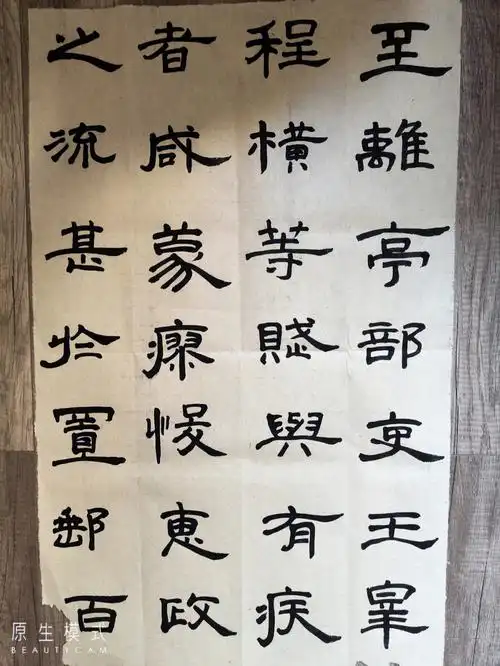 至離亭部吏王皐
程橫等賦與有疾
者咸蒙瘳悛惠政
之流甚於置郵百
原生模式
BEAUTYCAM